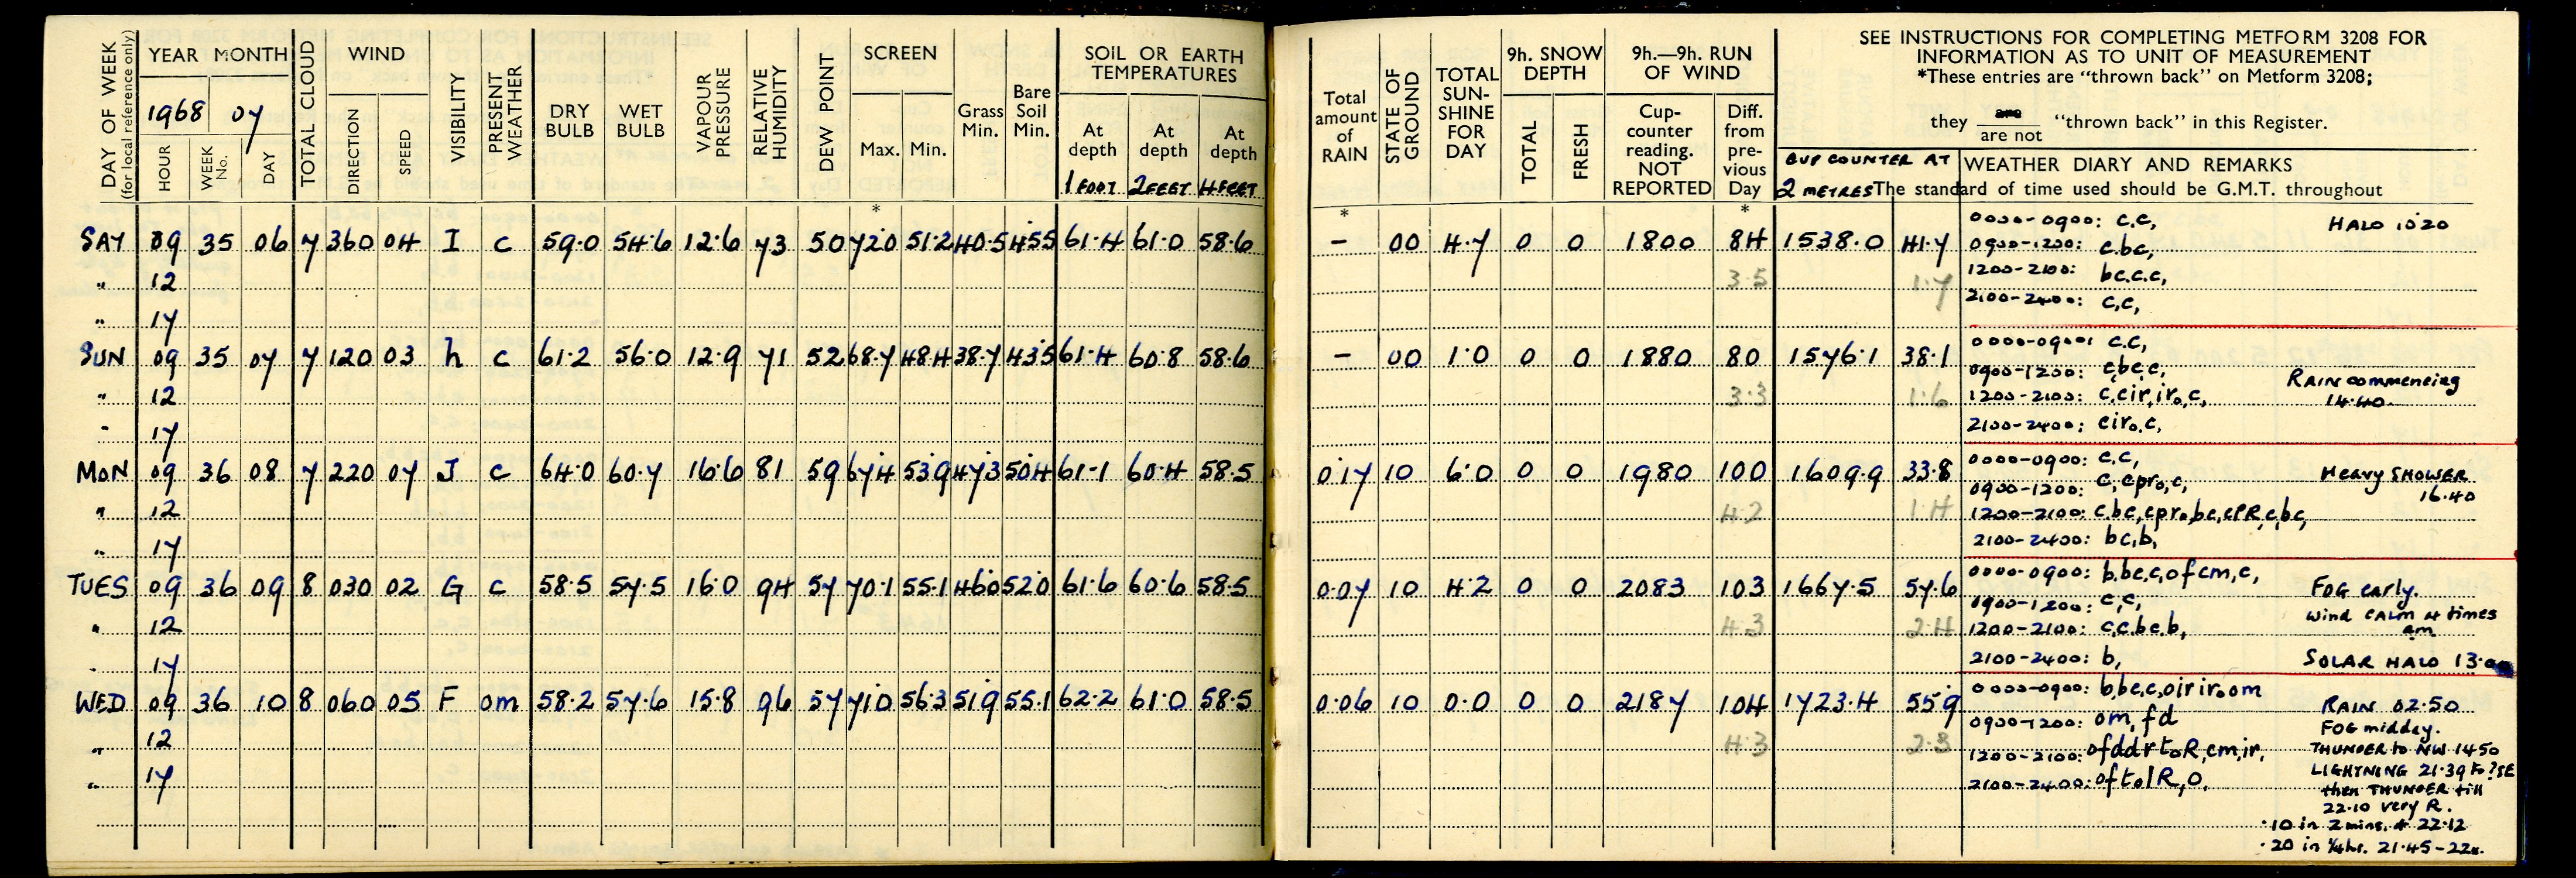 DAY OF WEEK
(for local reference only)
YEAR MONTH
1968 07
HOUR
WEEK No.
DAY
TOTAL CLOUD
WIND
DIRECTION
SPEED
VISIBILITY
PRESENT WEATHER
DRY BULB
WET BULB
VAPOUR PRESSURE
RELATIVE HUMIDITY
DEW POINT
SCREEN
Max.
Min.
*
Grass Min.
Bare Soil Min.
SOIL OR EARTH
TEMPERATURES
At depth
1 FOOT
At depth
2 FEET
At depth
4 FEET
SAT 09 35 06 7 360 04 I c 59.0 54.6 12.6 73 50 72.0 51.2 40.5 45.5 61.4 61.0 58.6
" 12
" 17
SUN 09 35 07 7 120 03 h c 61.2 56.0 12.9 71 52 68.7 48.4 38.7 43.5 61.4 60.8 58.6
" 12
" 17
MON 09 36 08 7 220 07 J c 64.0 60.7 16.6 81 59 67.4 53.9 47.3 50.4 61.1 60.4 58.5
" 12
" 17
TUES 09 36 09 8 030 02 G c 58.5 57.5 16.0 94 57 70.1 55.1 46.0 52.0 61.6 60.6 58.5
" 12
" 17
WED 09 36 10 8 060 05 F om 58.2 57.6 15.8 96 57 71.0 56.3 51.9 55.1 62.2 61.0 58.5
" 12
" 17
Total
amount
of
RAIN
*
STATE OF GROUND
TOTAL
SUN-
SHINE
FOR
DAY
9h. SNOW
DEPTH
TOTAL
FRESH
9h.—9h. RUN
OF WIND
Cup-
counter
reading.
NOT
REPORTED
Diff.
from
pre-
vious
Day
*
SEE INSTRUCTIONS FOR COMPLETING METFORM 3208 FOR
INFORMATION AS TO UNIT OF MEASUREMENT
*These entries are "thrown back" on Metform 3208;
they are / are not "thrown back" in this Register.
CUP COUNTER AT
2 METRES
WEATHER DIARY AND REMARKS
The standard of time used should be G.M.T. throughout
– 00 4.7 0 0 1800 84 1538.0 41.7
3.5 1.7
0000-0900: c,c,
HALO 10.20
0900-1200: c.bc,
1200-2100: bc.c.c,
2100-2400: c,c,
– 00 1.0 0 0 1880 80 1576.1 38.1
3.3 1.6
0000-0900: c.c,
0900-1200: c,bc,c,
RAIN commencing
14.40
1200-2100: c,cir,iro,c,
2100-2400: ciro.c,
0.17 10 6.0 0 0 1980 100 1609.9 33.8
4.2 1.4
0000-0900: c.c,
0900-1200: c,cpro,c,
Heavy SHOWER
16.40
1200-2100: c.bc,cpro,bc,cPR,c,bc,
2100-2400: bc,b,
0.07 10 4.2 0 0 2083 103 1667.5 57.6
4.3 2.4
0000-0900: b,bc,c,ofcm,c,
FOG early.
0900-1200: c,c,
wind CALM 4 times
am
1200-2100: c,c.bc.b,
2100-2400: b,
SOLAR HALO
0.06 10 0.0 0 0 2187 104 1723.4 55.9
4.3 2.3
0000-0900: b,bc,c,oiririoom
RAIN 02.50
0900-1200: om,fd
FOG midday.
1200-2100: ofddrtoR,cm,ir,
THUNDER to NW 1450
2100-2400: oftolR,o,
LIGHTNING 21.39 to ?SE
then THUNDER till
22.10 very R.
.10 in 2 mins. at 22.12
.20 in ¼hr. 21.45-